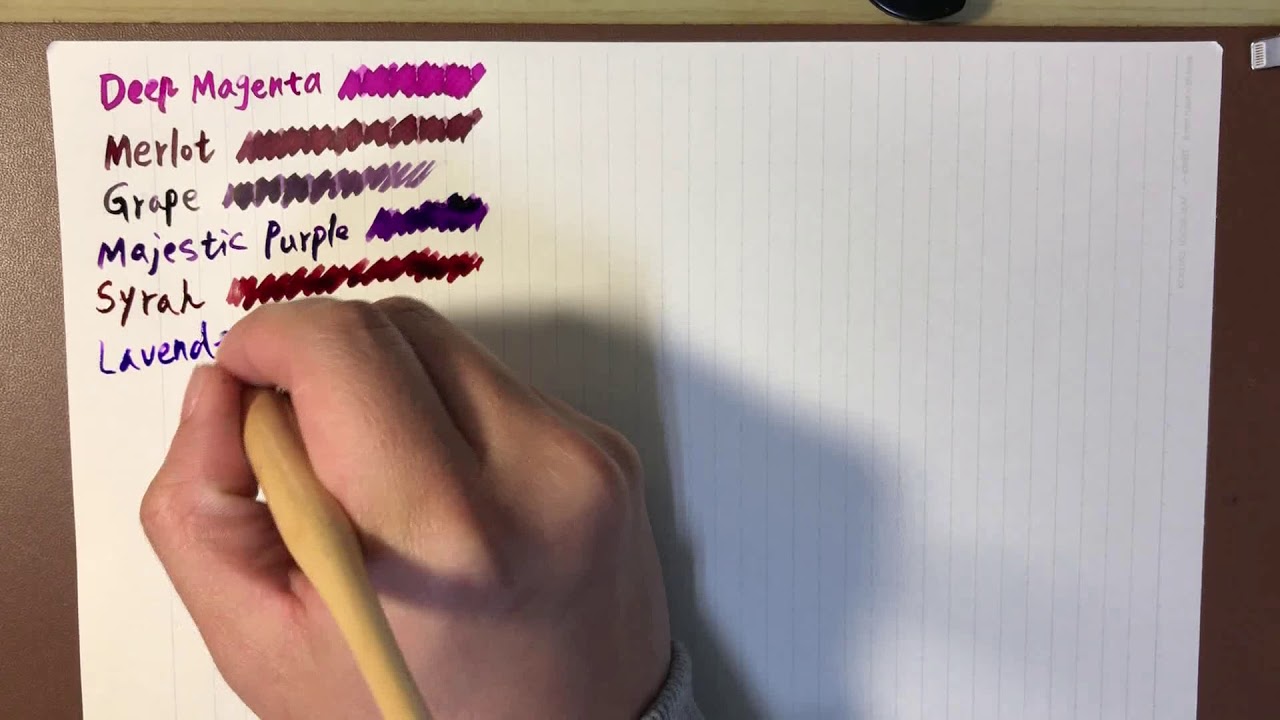 Deep Magenta
Merlot
Grape
Majestic Purple
Syrah
Lavend